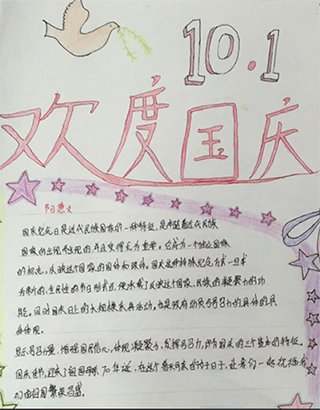 10.1
欢度国庆
节日意义
国庆纪念日是近代民族国家的一种特征,是伴随着近代民族
国家的出现而出现的,并且变得尤为重要。它成为一个独立国家
的标志,反映这个国家的国体和政体。国庆这种特殊纪念方式一旦成
为新的、全民性的节日形式,便承载了反映这个国家、民族的凝聚力的功
能。同时国庆日上的大规模庆典活动,也是政府动员与号召力的具体的具
体体现。
显示力量、增强国民信心,体现凝聚力,发挥号召力,即为国庆的三个基本的特征。
国庆佳节,迎来了祖国母亲70华诞,在这个普天同庆的好日子,让我们一起祝福
们的祖国繁荣昌盛。